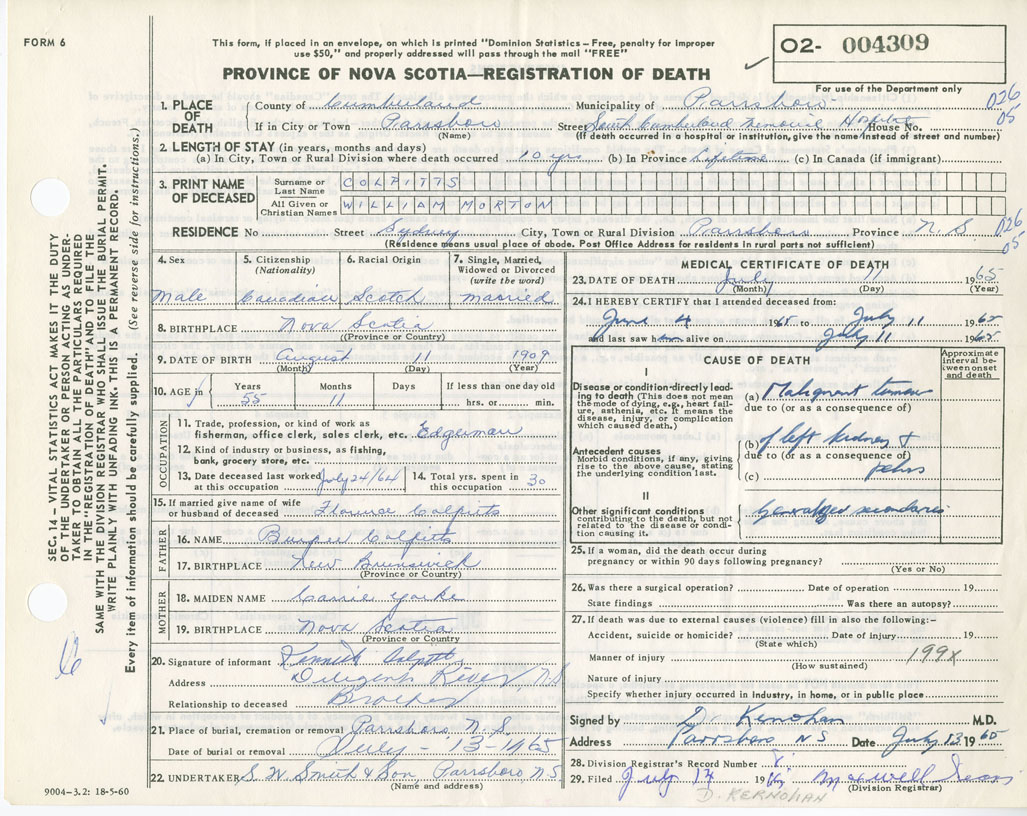 FORM 6
This form, if placed in an envelope, on which is printed "Dominion Statistics – Free, penalty for improper
use $50," and properly addressed will pass through the mail "FREE"
O2- 004309
PROVINCE OF NOVA SCOTIA—REGISTRATION OF DEATH
For use of the Department only
026
05
1. PLACE OF DEATH
County of Cumberland Municipality of Parrsboro
If in City or Town Parrsboro Street South Cumberland Memorial Hospital House No.
(Name) (If death occurred in a hospital or institution, give the name instead of street and number)
2. LENGTH OF STAY (in years, months and days)
(a) In City, Town or Rural Division where death occurred 10 yrs (b) In Province Lifetime (c) In Canada (if immigrant)
3. PRINT NAME OF DECEASED
Surname or Last Name COLPITTS
All Given or Christian Names WILLIAM MORTON
RESIDENCE No Street Sydney City, Town or Rural Division Parrsboro Province N. S 026
05
(Residence means usual place of abode. Post Office Address for residents in rural parts not sufficient)
4. Sex
Male
5. Citizenship
(Nationality)
Canadian
6. Racial Origin
Scotch
7. Single, Married,
Widowed or Divorced
(write the word)
married
8. BIRTHPLACE Nova Scotia
(Province or Country)
9. DATE OF BIRTH August 11 1909
(Month) (Day) (Year)
10. AGE in
Years Months Days If less than one day old
55 11 hrs. or min.
OCCUPATION
11. Trade, profession, or kind of work as
fisherman, office clerk, sales clerk, etc. Edgerman
12. Kind of industry or business, as fishing,
bank, grocery store, etc.
13. Date deceased last worked
at this occupation July 24/64
14. Total yrs. spent in
this occupation 30
15. If married give name of wife
or husband of deceased Florence Colpitts
FATHER
16. NAME Burpee Colpitts
17. BIRTHPLACE New Brunswick
(Province or Country)
MOTHER
18. MAIDEN NAME Carrie Yorke
19. BIRTHPLACE Nova Scotia
(Province or Country)
20. Signature of informant Colpitts
Address Diligent River, N.S
Relationship to deceased Brother
21. Place of burial, cremation or removal Parrsboro N. S.
Date of burial or removal July - 13 - 1965
22. UNDERTAKER S. W. Smith & Son, Parrsboro N S
(Name and address)
9004-3.2: 18-5-60
MEDICAL CERTIFICATE OF DEATH
23. DATE OF DEATH July 11 1965
(Month) (Day) (Year)
24. I HEREBY CERTIFY that I attended deceased from:
June 4 1965 to July 11 1965
and last saw him alive on July 11 1965
CAUSE OF DEATH
Approximate
interval be-
tween onset
and death
I
Disease or condition directly lead-
ing to death (This does not mean
the mode of dying, e.g., heart fail-
ure, asthenia, etc. It means the
disease, injury, or complication
which caused death.)
(a) Malignant tumour
due to (or as a consequence of)
Antecedent causes
Morbid conditions, if any, giving
rise to the above cause, stating
the underlying condition last.
(b) of left kidney &
due to (or as a consequence of)
(c) pelvis
II
Other significant conditions
contributing to the death, but not
related to the disease or condi-
tion causing it.
Generalized secondaries
25. If a woman, did the death occur during
pregnancy or within 90 days following pregnancy?
(Yes or No)
26. Was there a surgical operation? Date of operation 19
State findings Was there an autopsy?
27. If death was due to external causes (violence) fill in also the following:–
Accident, suicide or homicide? Date of injury 19
(State which)
Manner of injury 199X
(How sustained)
Nature of injury
Specify whether injury occurred in industry, in home, or in public place
Signed by Dr Kernohan M.D.
Address Parrsboro N S Date July 13 1965
28. Division Registrar's Record Number
29. Filed July 14 1965 Maxwell
(Division Registrar)
D. KERNOHAN
SEC. 14 – VITAL STATISTICS ACT MAKES IT THE DUTY
OF THE UNDERTAKER OR PERSON ACTING AS UNDER-
TAKER TO OBTAIN ALL THE PARTICULARS REQUIRED
IN THE "REGISTRATION OF DEATH" AND TO FILE THE
SAME WITH THE DIVISION REGISTRAR WHO SHALL ISSUE THE BURIAL PERMIT.
WRITE PLAINLY WITH UNFADING INK. THIS IS A PERMANENT RECORD.
Every item of information should be carefully supplied. (See reverse side for instructions.)